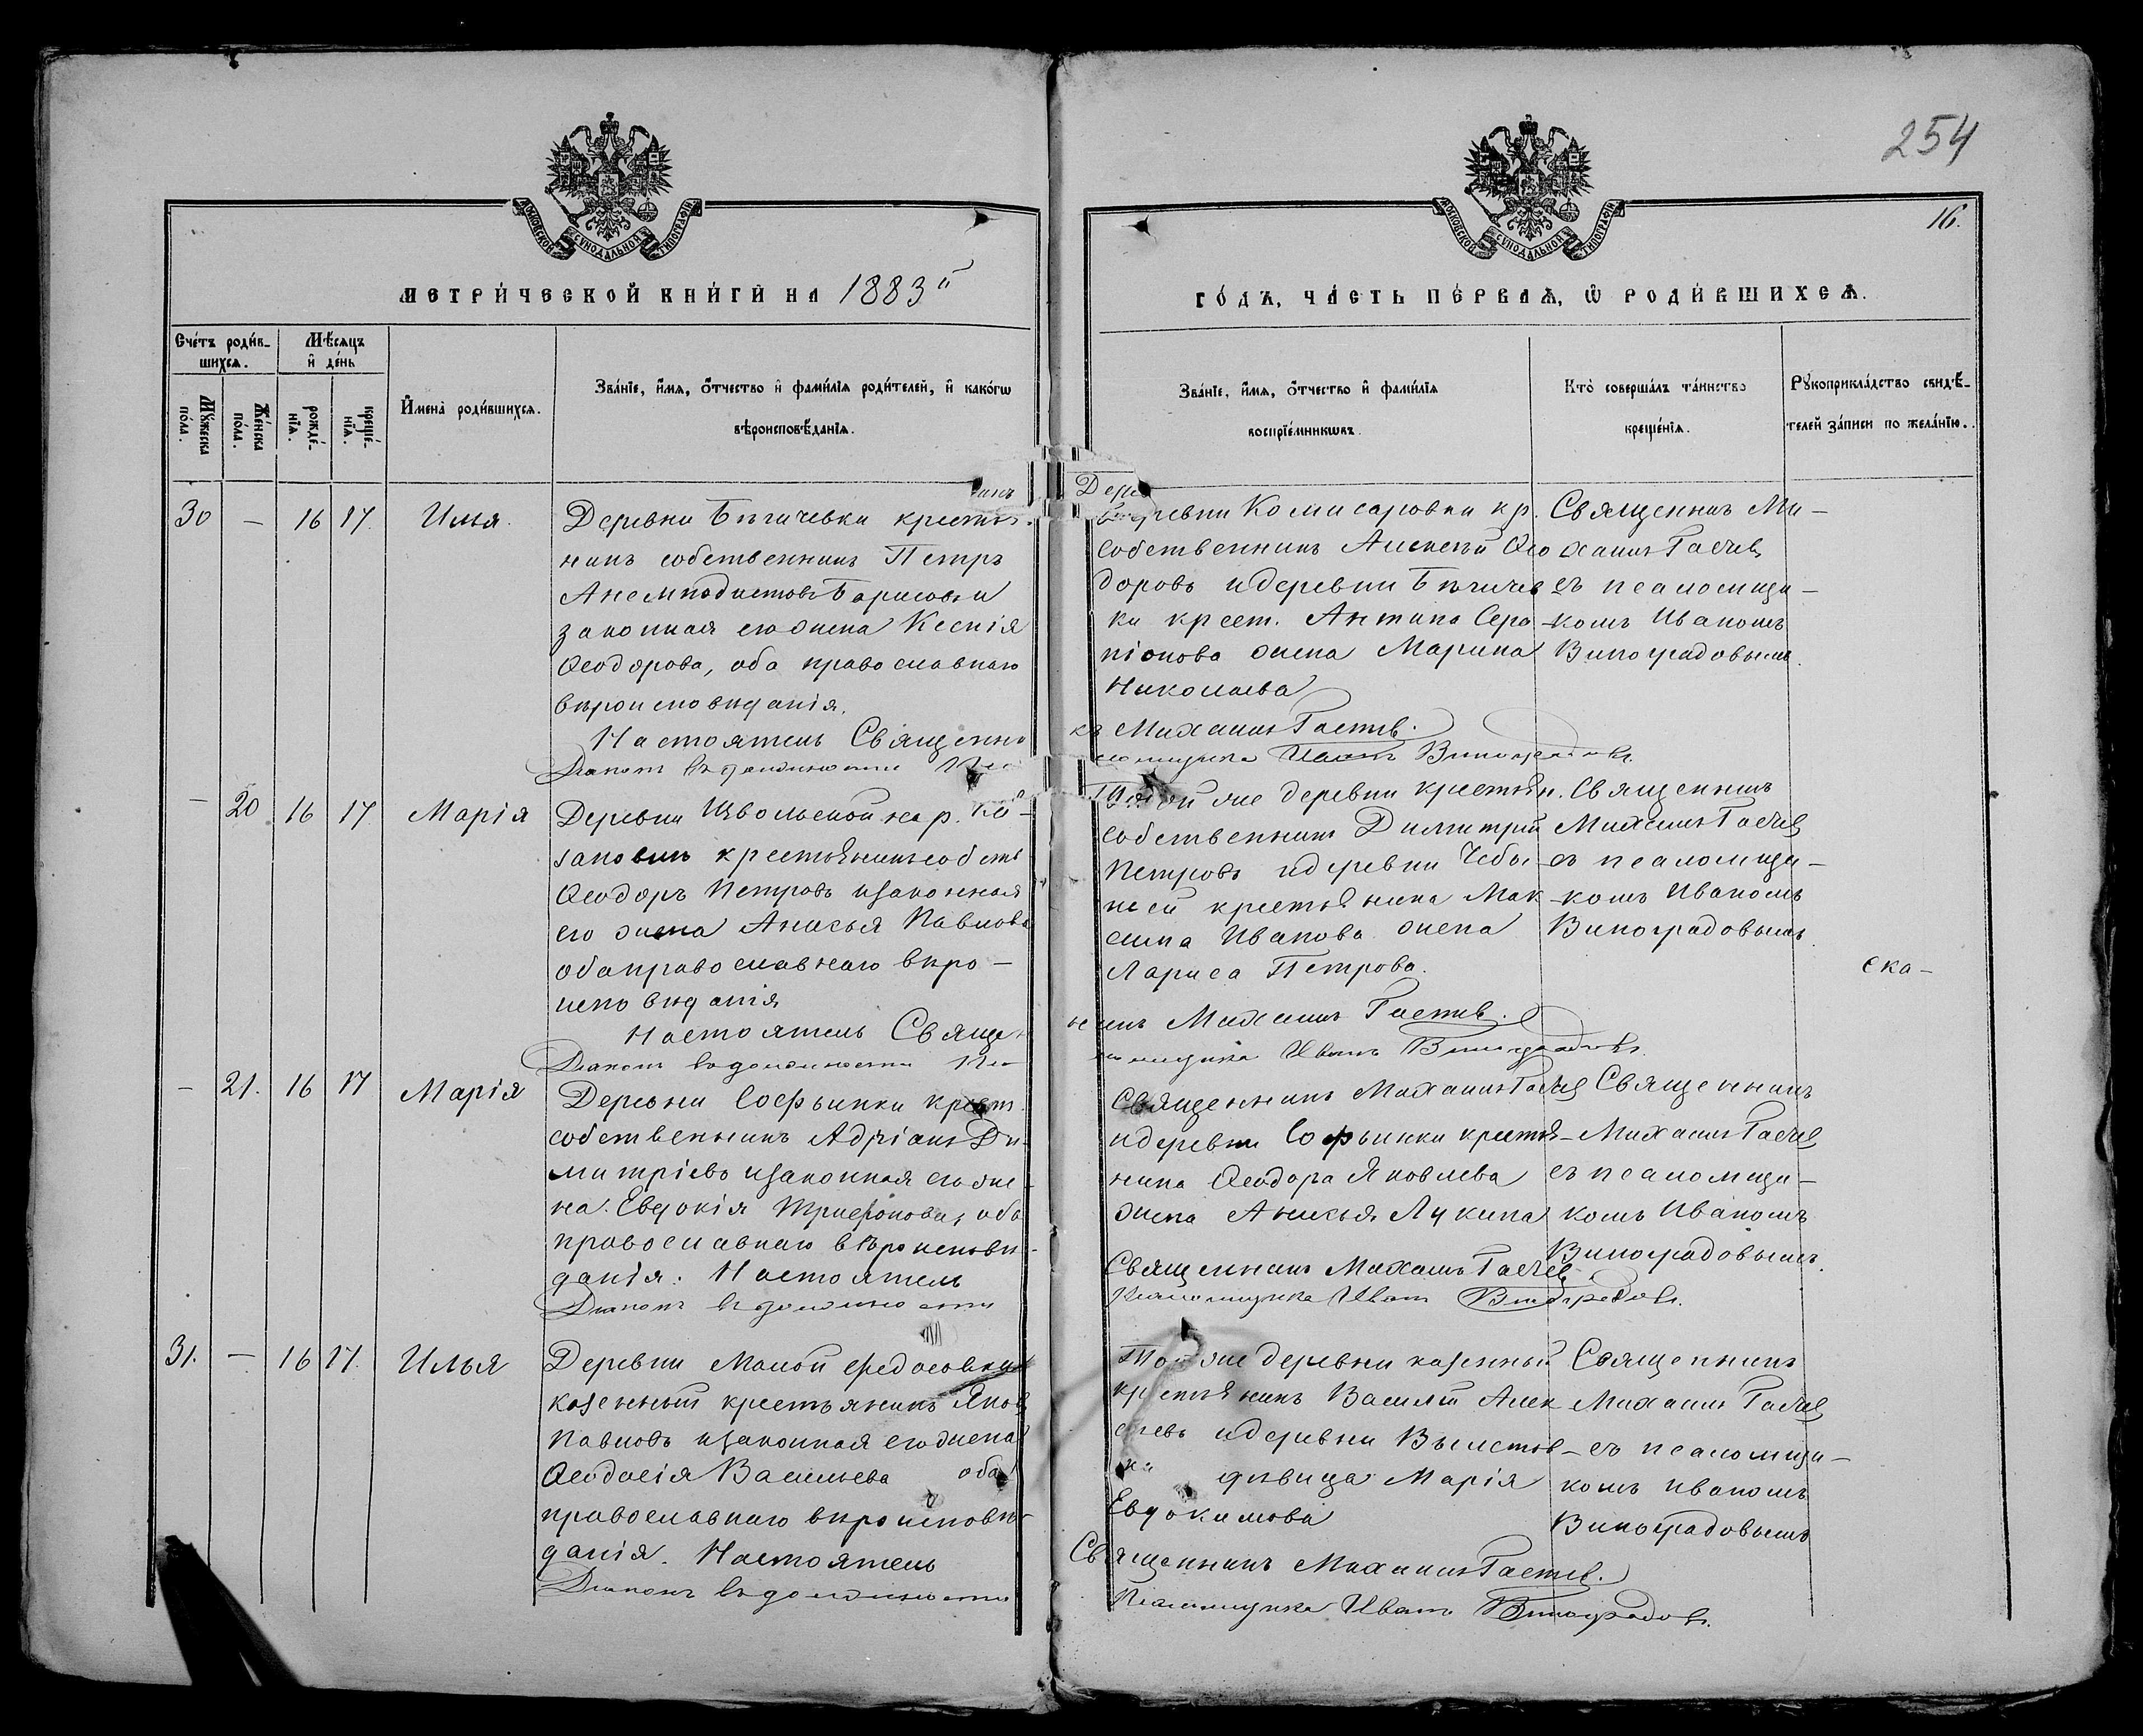 254
16.
МОСКОВСКОЙ СУНОДАЛЬНОЙ ТИПОГРАФІИ
МОСКОВСКОЙ СУНОДАЛЬНОЙ ТИПОГРАФІИ
МЕТРИ́ЧЕСКОЙ КНИ́ГИ НА 1883й
ГО́ДЪ, ЧА́СТЬ ПЕ́РВАѦ, Ѡ РОДИ́ВШИХСѦ.
Сче́тъ роди́в-
шихсѧ.
Мѣ́сѧцъ
и де́нь
Мꙋ́жеска
по́ла.
Же́нска
по́ла.
рожде́-
нїѧ.
креще́-
нїѧ.
Имена̀ роди́вшихсѧ.
Зва́нїе, и́мѧ, ѻ҆́тчество и҆ фами́лїѧ роди́телей, и҆ како́гѡ
вѣроисповѣ́данїѧ.
Зва́нїе, и́мѧ, ѻ҆́тчество и҆ фами́лїѧ
воспрїе́мникѡвъ.
Кто̀ соверша́лъ та́инство
креще́нїѧ.
Рꙋкоприкла́дство свидѣ́-
телей за́писи по жела́нїю.
30 — 16 17. Илья.
Деревни Бѣгичевки крестья-
нинъ собственникъ Петръ
Анемподистовъ Борисовъ и
законная его жена Ксенія
Ѳеодорова, оба православнаго
вѣроисповѣданія.
Настоятель Священни
Діаконъ въ должности Пса
Деревни Комисаровки кр.
собственникъ Алексѣй Ѳео
доровъ и деревни Бѣгичев
ки крест. Антипа Сера
піонова жена Марина
Николаева
къ Михаилъ Гастев.
ломщика Иванъ Виноградовъ.
Священникъ Ми-
хаилъ Гастев
съ псаломщи-
комъ Иваномъ
Виноградовымъ.
— 20 16 17 Марія
Деревни Извольской на р. Ка-
зановкѣ крестьянинъ собств
Ѳеодоръ Петровъ и законная
его жена Анисья Павлова
оба православнаго вѣро-
исповѣданія
Настоятель Священ
Діаконъ въ должности Пса
Той же деревни крестьян.
собственникъ Димитрій
Петровъ и деревни
крестьянина Мак
сима Иванова жена
Лариса Петрова.
никъ Михаилъ Гастев.
ломщика Иванъ Виноградовъ.
Священникъ
Михаилъ Гастев
съ псаломщи-
комъ Иваномъ
Виноградовымъ.
ска-
— 21. 16 17 Марія
Деревни Софьинки крест.
собственникъ Адріанъ Ди-
митріевъ и законная его же-
на Евдокія Трифонова, оба
православнаго вѣроисповѣ-
данія. Настоятель
Діаконъ въ должности
Священникъ Михаилъ Гастев
и деревни Софьинки крестья-
нина Ѳеодора Яковлева
жена Анисья Лукина
Священникъ Михаилъ Гастев
Псаломщика Иванъ Виноградовъ.
Священникъ
Михаилъ Гастев
съ псаломщи-
комъ Иваномъ
Виноградовымъ.
31. — 16 17. Илья
Деревни Малой Федосовки
казенный крестьянинъ Яковъ
Павловъ и законная его жена
Ѳеодосія Васильева оба
православнаго вѣроисповѣ-
данія. Настоятель
Діаконъ въ должности
Той же деревни казенный
крестьянинъ Василій Алек
сѣевъ и деревни
дѣвица Марія
Евдокимова
Священникъ Михаилъ Гастев.
Псаломщика Иванъ Виноградовъ.
Священникъ
Михаилъ Гастев
съ псаломщи-
комъ Иваномъ
Виноградовымъ